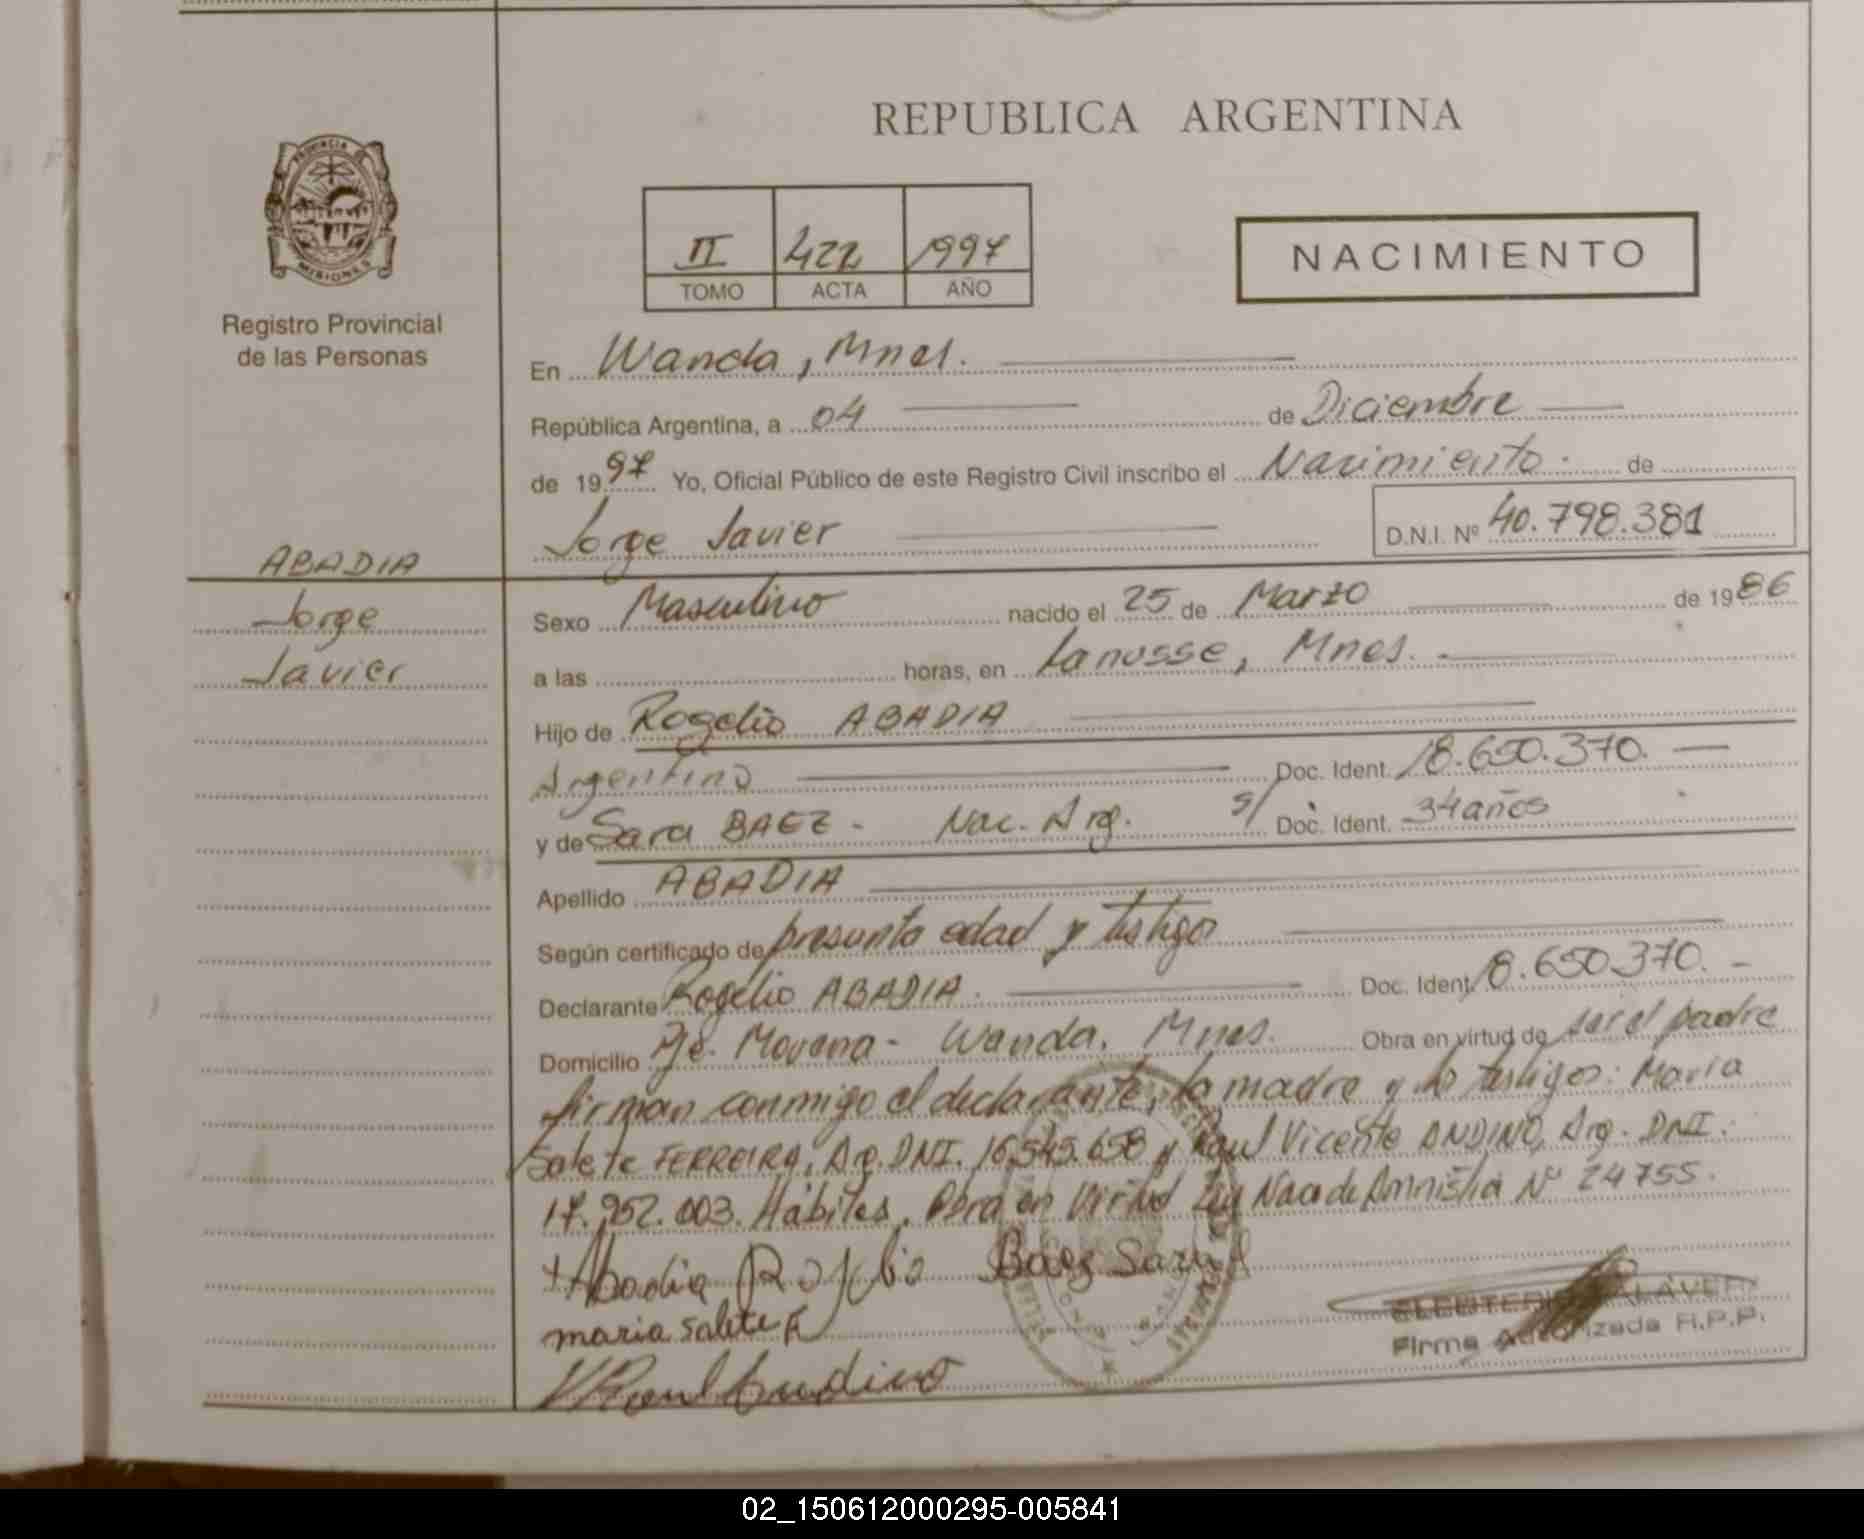 REPUBLICA ARGENTINA
PROVINCIA DE
MISIONES
Registro Provincial
de las Personas
II 422 1997
TOMO ACTA AÑO
NACIMIENTO
En Wanda, Mnes.
República Argentina, a 04 de Diciembre
de 1997 Yo, Oficial Público de este Registro Civil inscribo el Nacimiento. de
Jorge Javier D.N.I. Nº 40.798.381
ABADIA
Jorge
Javier
Sexo Masculino nacido el 25 de Marzo de 1986
a las horas, en Lanusse, Mnes.
Hijo de Rogelio ABADIA
Argentino Doc. Ident. 18.650.370.
y de Sara BAEZ - Nac. Arg. s/ Doc. Ident. 34 años
Apellido ABADIA
Según certificado de presunta edad y testigo
Declarante Rogelio ABADIA. Doc. Ident. 18.650.370. -
Domicilio Pje. Morena - Wanda, Mnes. Obra en virtud de ser el padre
firman conmigo el declarante, la madre y los testigos: María
Salete FERREIRA, Arg. DNI. 16.545.658 y Raul Vicente ANDINO, Arg. DNI.
17.952.003. Hábiles. Obra en Virtud Ley Nac. de Amnistía Nº 24755.
Abadia Rogelio Baez Sara
maria salete F
Raul Andino
Firma Autorizada R.P.P.
02_150612000295-005841